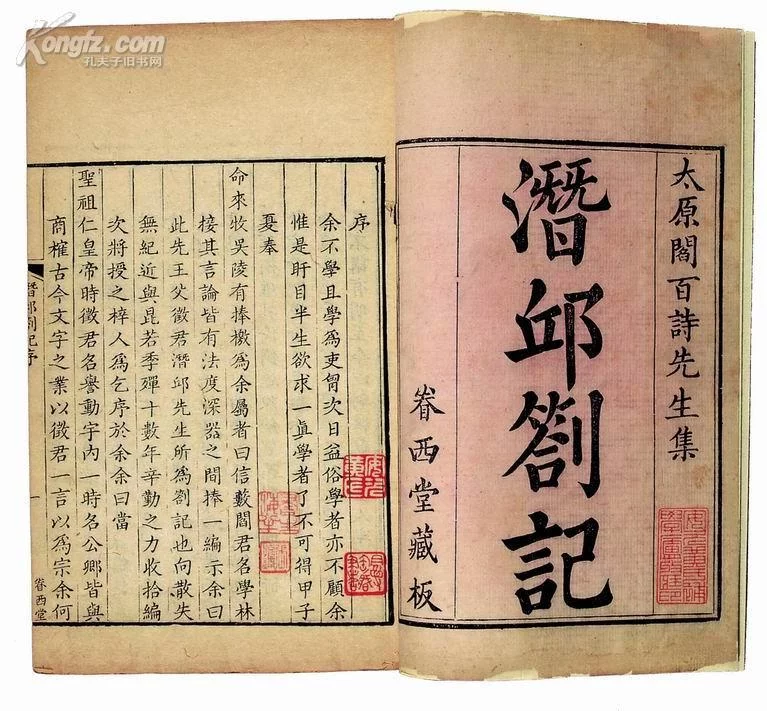 太原閻百詩先生集
潛邱劄記
眷西堂藏板
序
余不學且學為吏胥次日益俗學者亦不顧余
惟是盱目半生欲求一眞學者了不可得甲子
夏奉
命來牧吳陵有捧檄為余屬者曰信藪閻君名學林
接其言論皆有法度深器之間捧一編示余曰
此先王父徵君潛邱先生所為劄記也向散失
無紀近與昆若季殫十數年辛勤之力收拾編
次將授之梓人為乞序於余余曰當
聖祖仁皇帝時徵君名譽動宇內一時名公卿皆與
商榷古今文字之業以徵君一言以為宗余何
潛邱劄記序
一
眷西堂
Kongfz.com
孔夫子旧书网